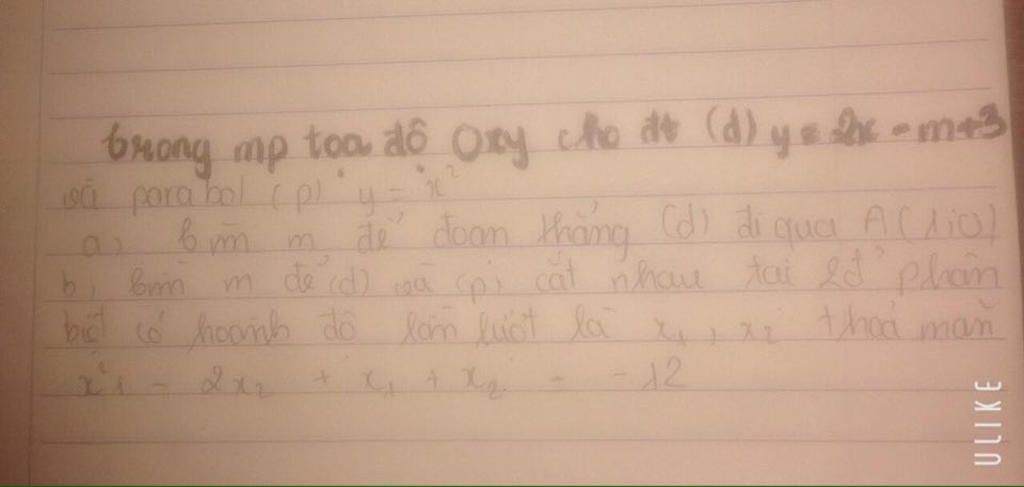 trong mp tọa độ Oxy cho đt (d) y = 2x - m + 3
và parabol (p) y = x²
a, tìm m để đoạn thẳng (d) đi qua A(1;0)
b, tìm m để (d) và (p) cắt nhau tại 2đ' phân
biệt có hoành độ lần lượt là x₁, x₂ thoả mãn
x²₁ - 2x₂ + x₁ + x₂ = -12
ULIKE